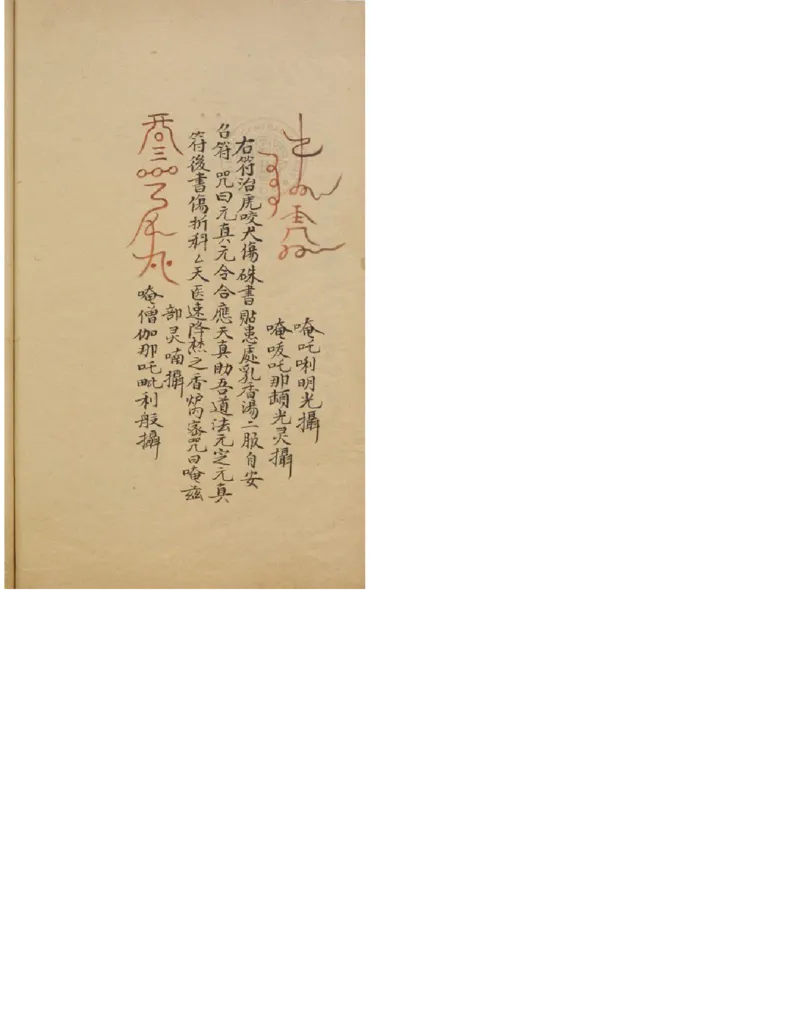 唵吒唎明光攝
唵唆吒那頡光灵攝
右符治虎咬犬傷硃書貼患處乳香湯二服自安
召符 咒曰元真元令合應天真助吾道法元定元真
符後書傷折科 天医速降愁之香炉內密咒曰唵茲
部灵喃攝
唵僧伽那吒毗利般攝